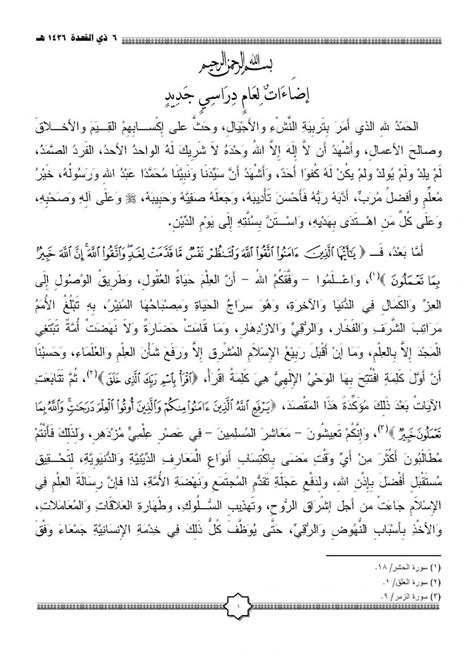 ٦ ذي القعدة ١٤٣٦ هـ
بسم الله الرحمن الرحيم
إضَاءَاتٌ لِعَامٍ دِرَاسِيٍّ جَدِيدٍ
الحَمْدُ للهِ الذي أَمَرَ بتَربِيَةِ النَّشْءِ والأَجْيَالِ، وحَثَّ على إِكْسابِهِمُ القِيَمَ والأَخْلاقَ
وصالحَ الأَعمالِ، وأَشْهَدُ أَنْ لاَّ إلَهَ إلاَّ اللهُ وَحْدَهُ لا شَرِيكَ لَهُ الواحِدُ الأَحدُ، الفَردُ الصَّمَدُ،
لَمْ يَلِدْ ولَمْ يُولَدْ ولَمْ يَكُنْ لَهُ كُفوا أَحَد، وأَشْهَدُ أَنَّ سَيِّدَنا ونَبِيَّنا مُحمَّدًا عَبدُ اللهِ ورَسُولُهُ، خَيْرُ
مُعلِّمٍ وأَفضلُ مُرَبٍّ، أَدَّبَهُ ربُّهُ فَأَحسَنَ تَأْدِيبَهُ، وجَعلَهُ صَفِيَّهُ وحَبِيبَهُ، ﷺ وعَلَى آلِهِ وصَحْبِهِ،
وعَلَى كُلِّ مَنِ اهْتَدَى بِهَدْيِهِ، واسْتَنَّ بِسُنَّتِهِ إلى يَومِ الدِّيْنِ.
أمَّا بَعْدُ، فَـ ﴿يَٰٓأَيُّهَا ٱلَّذِينَ ءَامَنُوا۟ ٱتَّقُوا۟ ٱللَّهَ وَلْتَنظُرْ نَفْسٌ مَّا قَدَّمَتْ لِغَدٍ وَٱتَّقُوا۟ ٱللَّهَ إِنَّ ٱللَّهَ خَبِيرٌۢ
بِمَا تَعْمَلُونَ﴾(١)، وَاعْلَمُوا - وفَّقَكُمُ اللهُ - أَنَّ العِلْمَ حَياةُ العُقُولِ، وطَرِيقُ الوُصُولِ إلى
العِزِّ والكَمَالِ في الدُّنيَا والآخِرَةِ، وهُوَ سِراجُ الحَياةِ ومِصبَاحُها المُنيْرُ، بهِ تَبْلُغُ الأُمَمُ
مَراتِبَ الشَّرفِ والفَخَارِ، والرُّقيِّ والازْدِهارِ، ومَا قَامَتْ حَضارَةٌ ولا نَهضَتْ أُمَّةٌ تَبتَغِي
المَجْدَ إلاَّ بِالعِلْمِ، ومَا إنْ أَقْبلَ رَبيْعُ الإسْلاَمِ المُشْرِقِ إلاَّ ورَفعَ شَأنَ العِلْمِ والعُلَمَاءِ، وحَسبُنَا
أَنَّ أَوَّلَ كَلِمَةٍ افْتَتَحَ بِها الوَحْيُ الإلَهيُّ هيَ كَلِمَةُ اقْرَأْ، ﴿ٱقْرَأْ بِٱسْمِ رَبِّكَ ٱلَّذِى خَلَقَ﴾(٢)، ثُمَّ تَتَابَعتِ
الآيَاتُ بعدَ ذلكَ مُؤكِّدَةً هذا المَقصَدَ، ﴿يَرْفَعِ ٱللَّهُ ٱلَّذِينَ ءَامَنُوا۟ مِنكُمْ وَٱلَّذِينَ أُوتُوا۟ ٱلْعِلْمَ دَرَجَٰتٍ وَٱللَّهُ بِمَا
تَعْمَلُونَ خَبِيرٌ﴾(٣)، وإنَّكُمْ تَعِيشُونَ - مَعاشِرَ المُسلِمينَ - في عَصْرٍ عِلْمِيٍّ مُزدَهِرٍ، ولذَلِكَ فأَنتُمْ
مُطالَبُونَ أَكثرَ مِنْ أَيِّ وَقتٍ مَضَى بِاكْتِسَابِ أَنواعِ المَعارِفِ الدِّيْنيَّةِ والدُّنيَوِيَّةِ، لِتَحْقِيقِ
مُستَقبَلٍ أَفضلَ بِإذنِ اللهِ، ولِدفعِ عَجلَةِ تَقدُّمِ المُجتَمعِ ونَهْضَةِ الأُمَّةِ، لِذا فإنَّ رِسالَةَ العِلْمِ في
الإسْلامِ جَاءَتْ مِنْ أَجلِ إشْراقِ الرُّوحِ، وتَهذِيبِ السُّلُوكِ، وطَهارَةِ العَلاقاتِ والمُعامَلاتِ،
والأَخْذِ بِأَسبَابِ النُّهُوضِ والرُّقِيِّ، حتَّى يُوظَّفَ كُلُّ ذلكَ في خِدمَةِ الإنسَانِيَّةِ جَمْعاءَ وَفْقَ
(١) سورة الحشر/ ١٨.
(٢) سورة العلق/ ١.
(٣) سورة الزمر/ ٩.